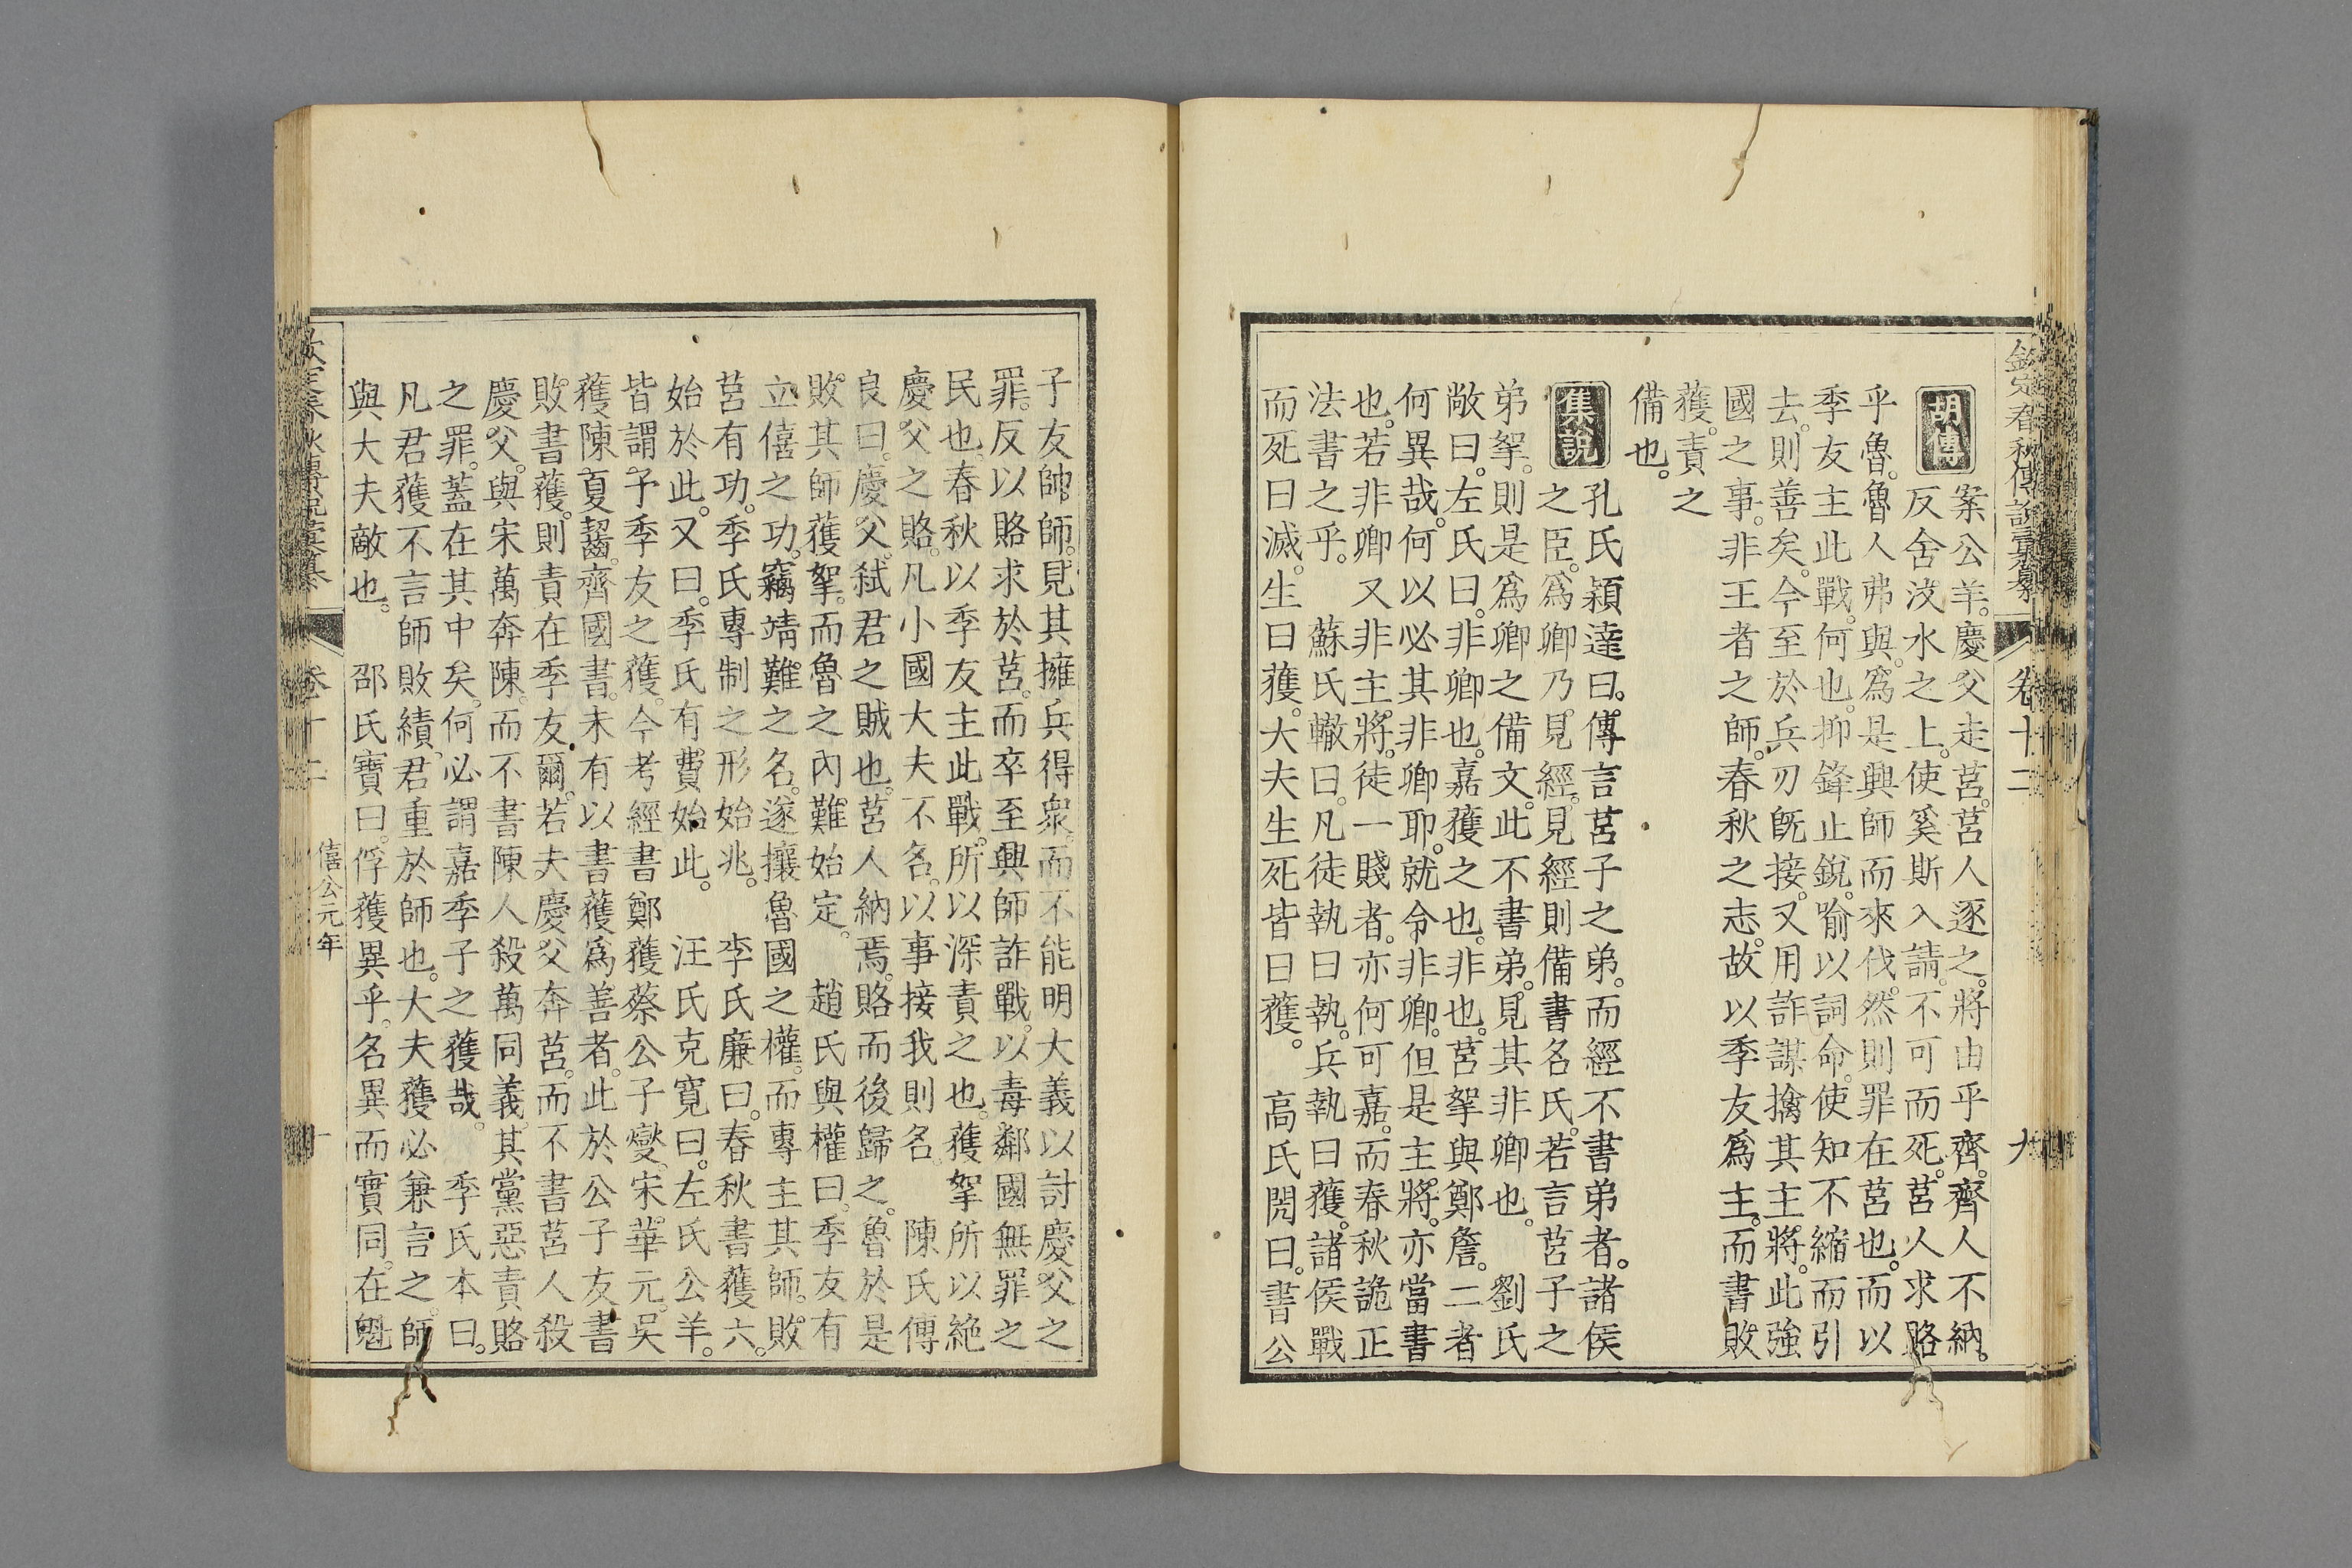 欽定春秋傳說彙纂 卷十二 九
胡傳
案公羊慶父走莒莒人逐之將由乎齊齊人不納
反舍汶水之上使奚斯入請不可而死莒人求賂
乎魯魯人弗與爲是興師而來伐然則罪在莒也而以
季友主此戰何也抑鋒止銳喻以詞命使知不縮而引
去則善矣今至於兵刃旣接又用詐謀擒其主將此強
國之事非王者之師春秋之志故以季友爲主而書敗
獲責之
備也
集說
孔氏穎達曰傳言莒子之弟而經不書弟者諸侯
之臣爲卿乃見經見經則備書名氏若言莒子之
弟挐則是爲卿之備文此不書弟見其非卿也 劉氏
敞曰左氏曰非卿也嘉獲之也非也莒挐與鄭詹二者
何異哉何以必其非卿耶就令非卿但是主將亦當書
也若非卿又非主將徒一賤者亦何可嘉而春秋詭正
法書之乎 蘇氏轍曰凡徒執曰執兵執曰獲諸侯戰
而死曰滅生曰獲大夫生死皆曰獲 高氏閌曰書公
子友帥師見其擁兵得衆而不能明大義以討慶父之
罪反以賂求於莒而卒至興師詐戰以毒鄰國無罪之
民也春秋以季友主此戰所以深責之也獲挐所以絶
慶父之賂凡小國大夫不名以事接我則名 陳氏傅
良曰慶父弑君之賊也莒人納焉賂而後歸之魯於是
敗其師獲挐而魯之內難始定 趙氏與權曰季友有
立僖之功竊靖難之名遂攘魯國之權而專主其師敗
莒有功季氏專制之形始兆 李氏廉曰春秋書獲六
始於此又曰季氏有費始此 汪氏克寬曰左氏公羊
皆謂予季友之獲今考經書鄭獲蔡公子燮宋華元吳
獲陳夏齧齊國書未有以書獲爲善者此於公子友書
敗書獲則責在季友爾若夫慶父奔莒而不書莒人殺
慶父與宋萬奔陳而不書陳人殺萬同義其黨惡責賂
之罪蓋在其中矣何必謂嘉季子之獲哉 季氏本曰
凡君獲不言師敗績君重於師也大夫獲必兼言之師
與大夫敵也 邵氏寶曰俘獲異乎名異而實同在魁
僖公元年
欽定春秋傳說彙纂 卷十二